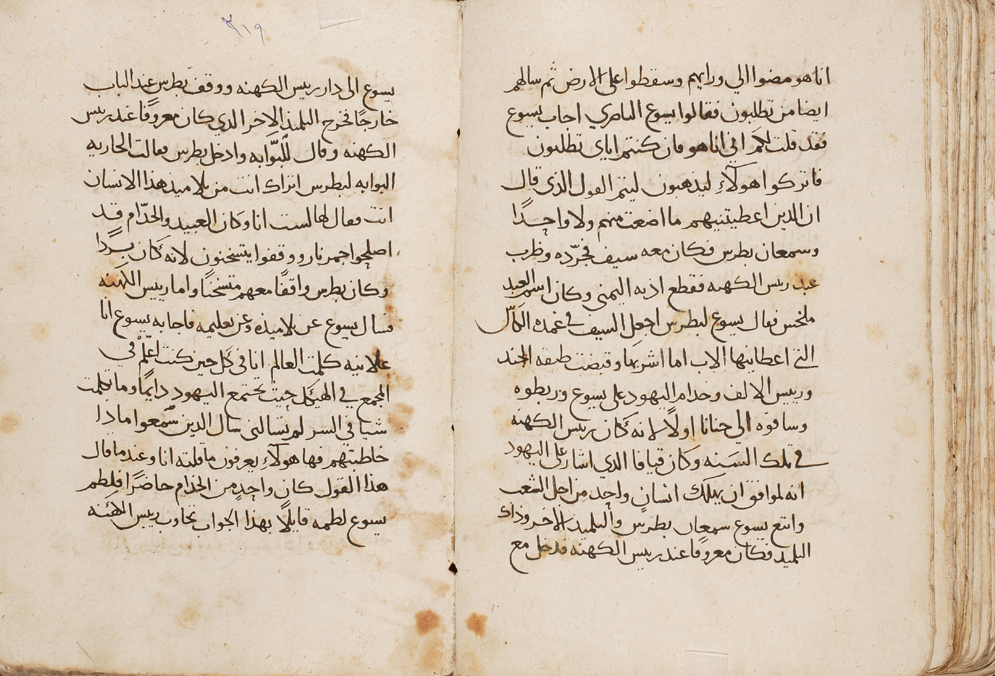 انا هو مضوا الي ورايهم وسقطوا على الارض ثم سالهم
ايضا من تطلبون فقالوا يسوع الناصري اجاب يسوع
فقد قلت لكم اني انا هو فان كنتم اياي تطلبون
فاتركوا هولاء ليذهبون ليتم القول الذي قال
ان الذين اعطيتنيهم ما اضعت منهم ولا واحدًا
وسمعان بطرس فكان معه سيف فجرّده وظرب
عبد ريس الكهنه فقطع ادنه اليمنى وكان اسم العبد
ملخس فقال يسوع لبطرس اجعل السيف في غمده الكاس
التي اعطانيها الاب اما اشربها وقبضت طبقه الجند
وريس الالف وخدام اليهود على يسوع وربطوه
وساقوه الي حنانا اولًا لانه كان ريس الكهنه
في تلك السنه وكان قيافا الذي اشار على اليهود
انه لموافق ان يهلك انسان واحد من اجل الشعب
واتبع يسوع سمعان بطرس والتلميذ الاخر وذاك
التلميد فكان معروفًا عند ريس الكهنه فدخل مع
٢١٩
يسوع الى دار ريس الكهنه ووقف بطرس عند الباب
خارجًا فخرج التلميذ الاخر الذي كان معروفًا عند ريس
الكهنه وقال للبوّابه وادخل بطرس فقالت الجاريه
البوابه لبطرس اتراك انت من تلاميد هذا الانسان
انت فقال لها لست انا وكان العبيد والخدّام قد
اصلحوا جمر نار ووقفوا يتسخنون لانه كان بردًا
وكان بطرس واقفًا معهم متسخنًا واما ريس الكهنه
فسال يسوع عن تلاميذه وعن تعليمه فاجابه يسوع انا
علانيه كلمت العالم انا في كل حين كنت اعلّم في
المجمع في الهيكل حيث تجتمع اليهود دايمًا وما تكلمت
شيا في السر لم تسالني سال الذين سمعوا مادا
خاطبتهم فها هولاء يعرفون ما قلته انا وعند ما قال
هذا القول كان واحد من الخدام حاضرًا فلطم
يسوع لطمه قايلًا بهذا الجواب تجاوب ريس الكهنه